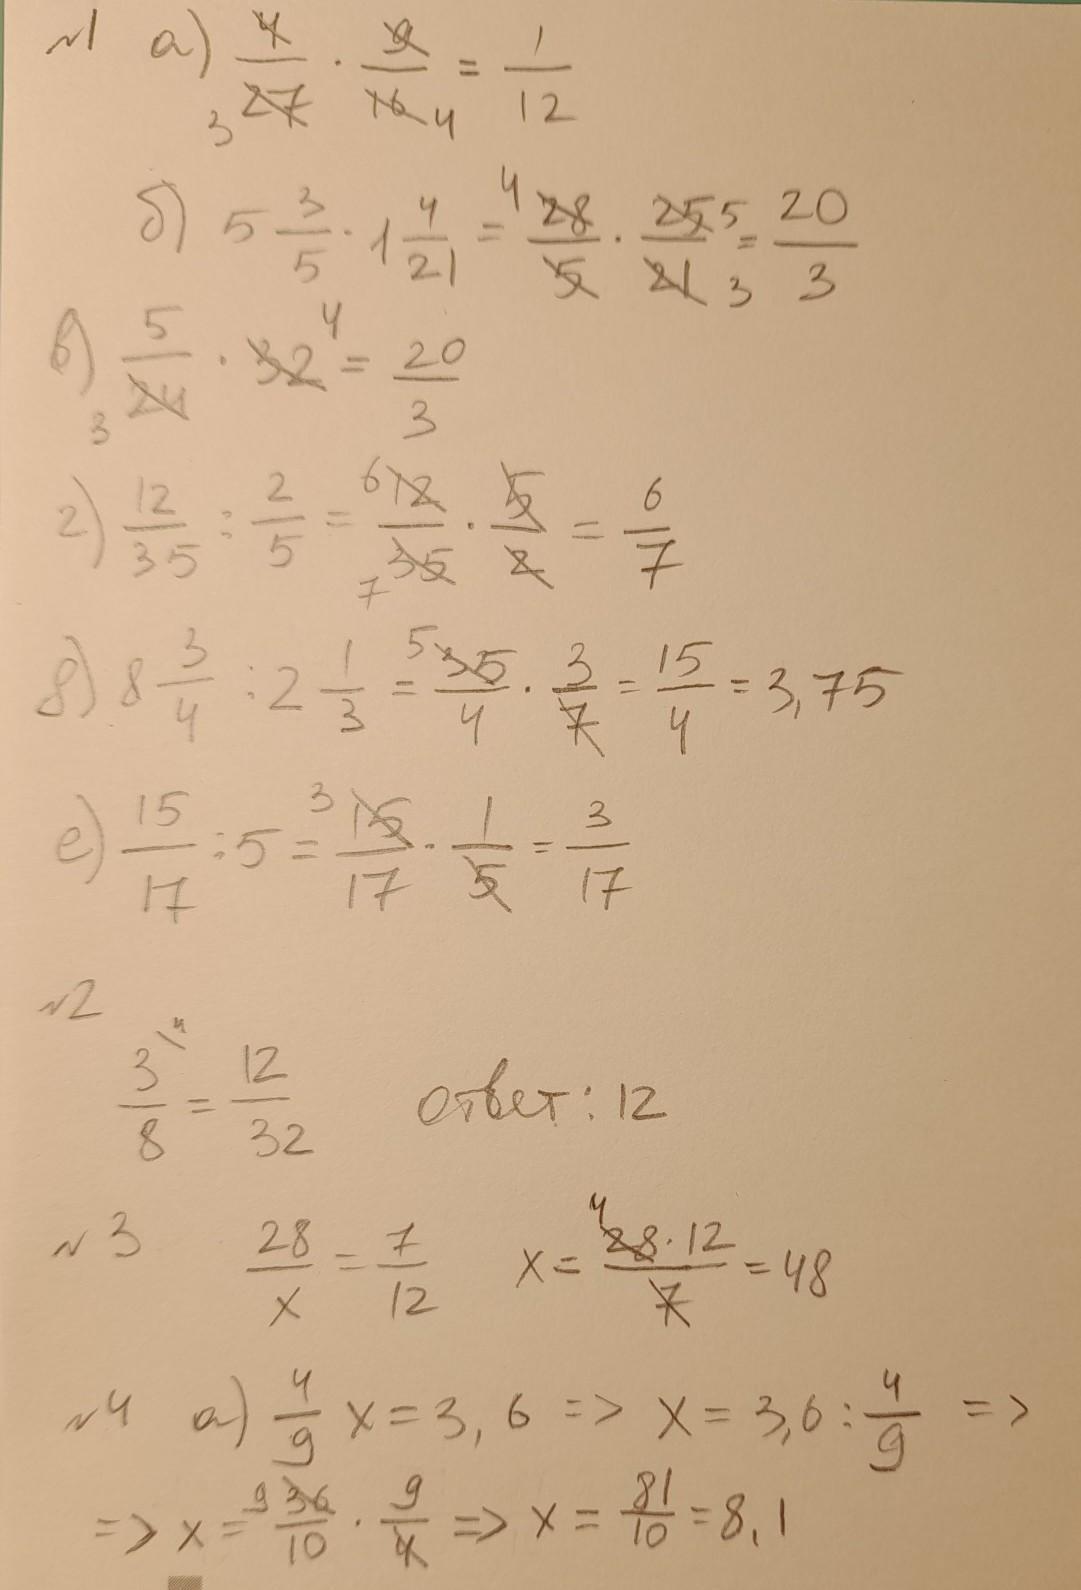 №1 а) 4/27 · 9/16 = 1/12 3 4
б) 5 3/5 · 1 4/21 = 4 28/5 · 25/21 5 3 = 20/3
в) 5/24 3 · 32 4 = 20/3
г) 12/35 : 2/5 = 6 12/35 7 · 5/2 = 6/7
д) 8 3/4 : 2 1/3 = 5 35/4 · 3/7 = 15/4 = 3,75
е) 15/17 : 5 = 3 15/17 · 1/5 = 3/17
№2
3\4/8 = 12/32 ответ: 12
№3 28/x = 7/12 x = 4 28·12/7 = 48
№4 а) 4/9 x = 3,6 => x = 3,6 : 4/9 =>
=> x = 9 36/10 · 9/4 => x = 81/10 = 8,1